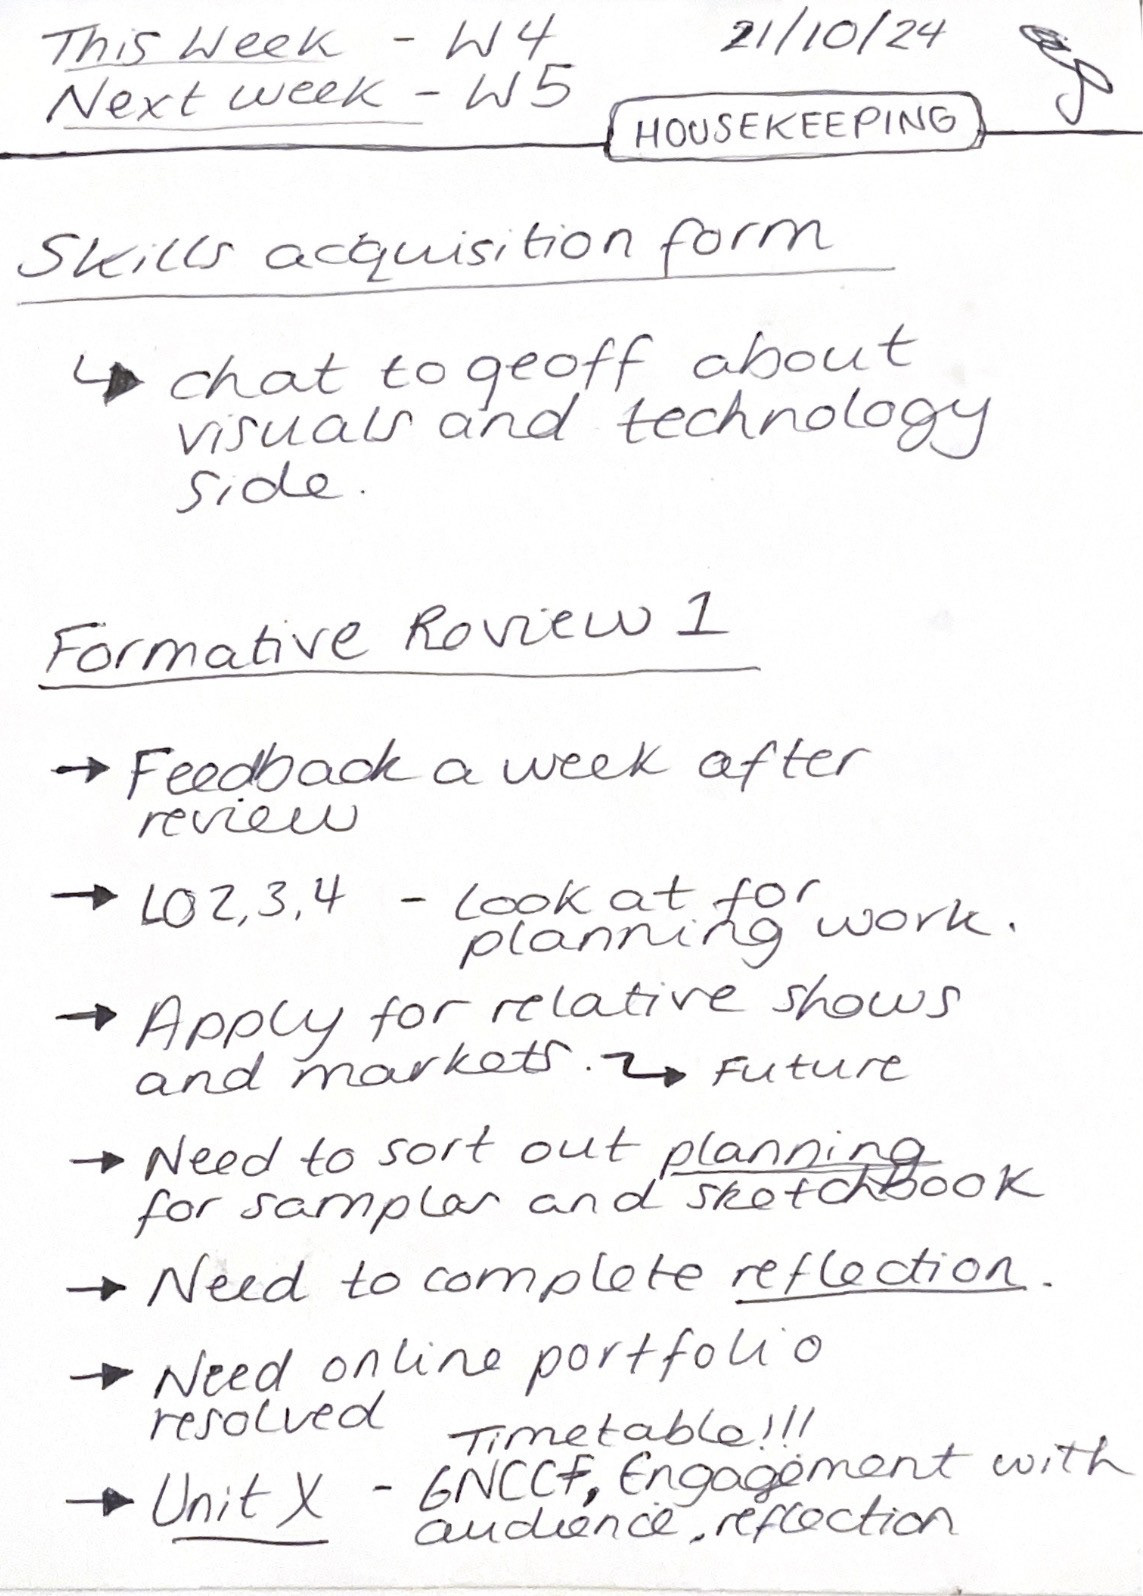 This Week - W4
21/10/24
Next week - W5
HOUSEKEEPING
Skills acquisition form
chat to geoff about
visuals and technology
side.
Formative Review 1
→ Feedback a week after
review
→ LO2,3,4 - Look at for
planning work.
→ Apply for relative shows
and markets. → Future
→ Need to sort out planning
for samples and sketchbook
→ Need to complete reflection.
→ Need online portfolio
resolved
Timetable!!!
→ Unit X - GNCCF, Engagement with
audience, reflection